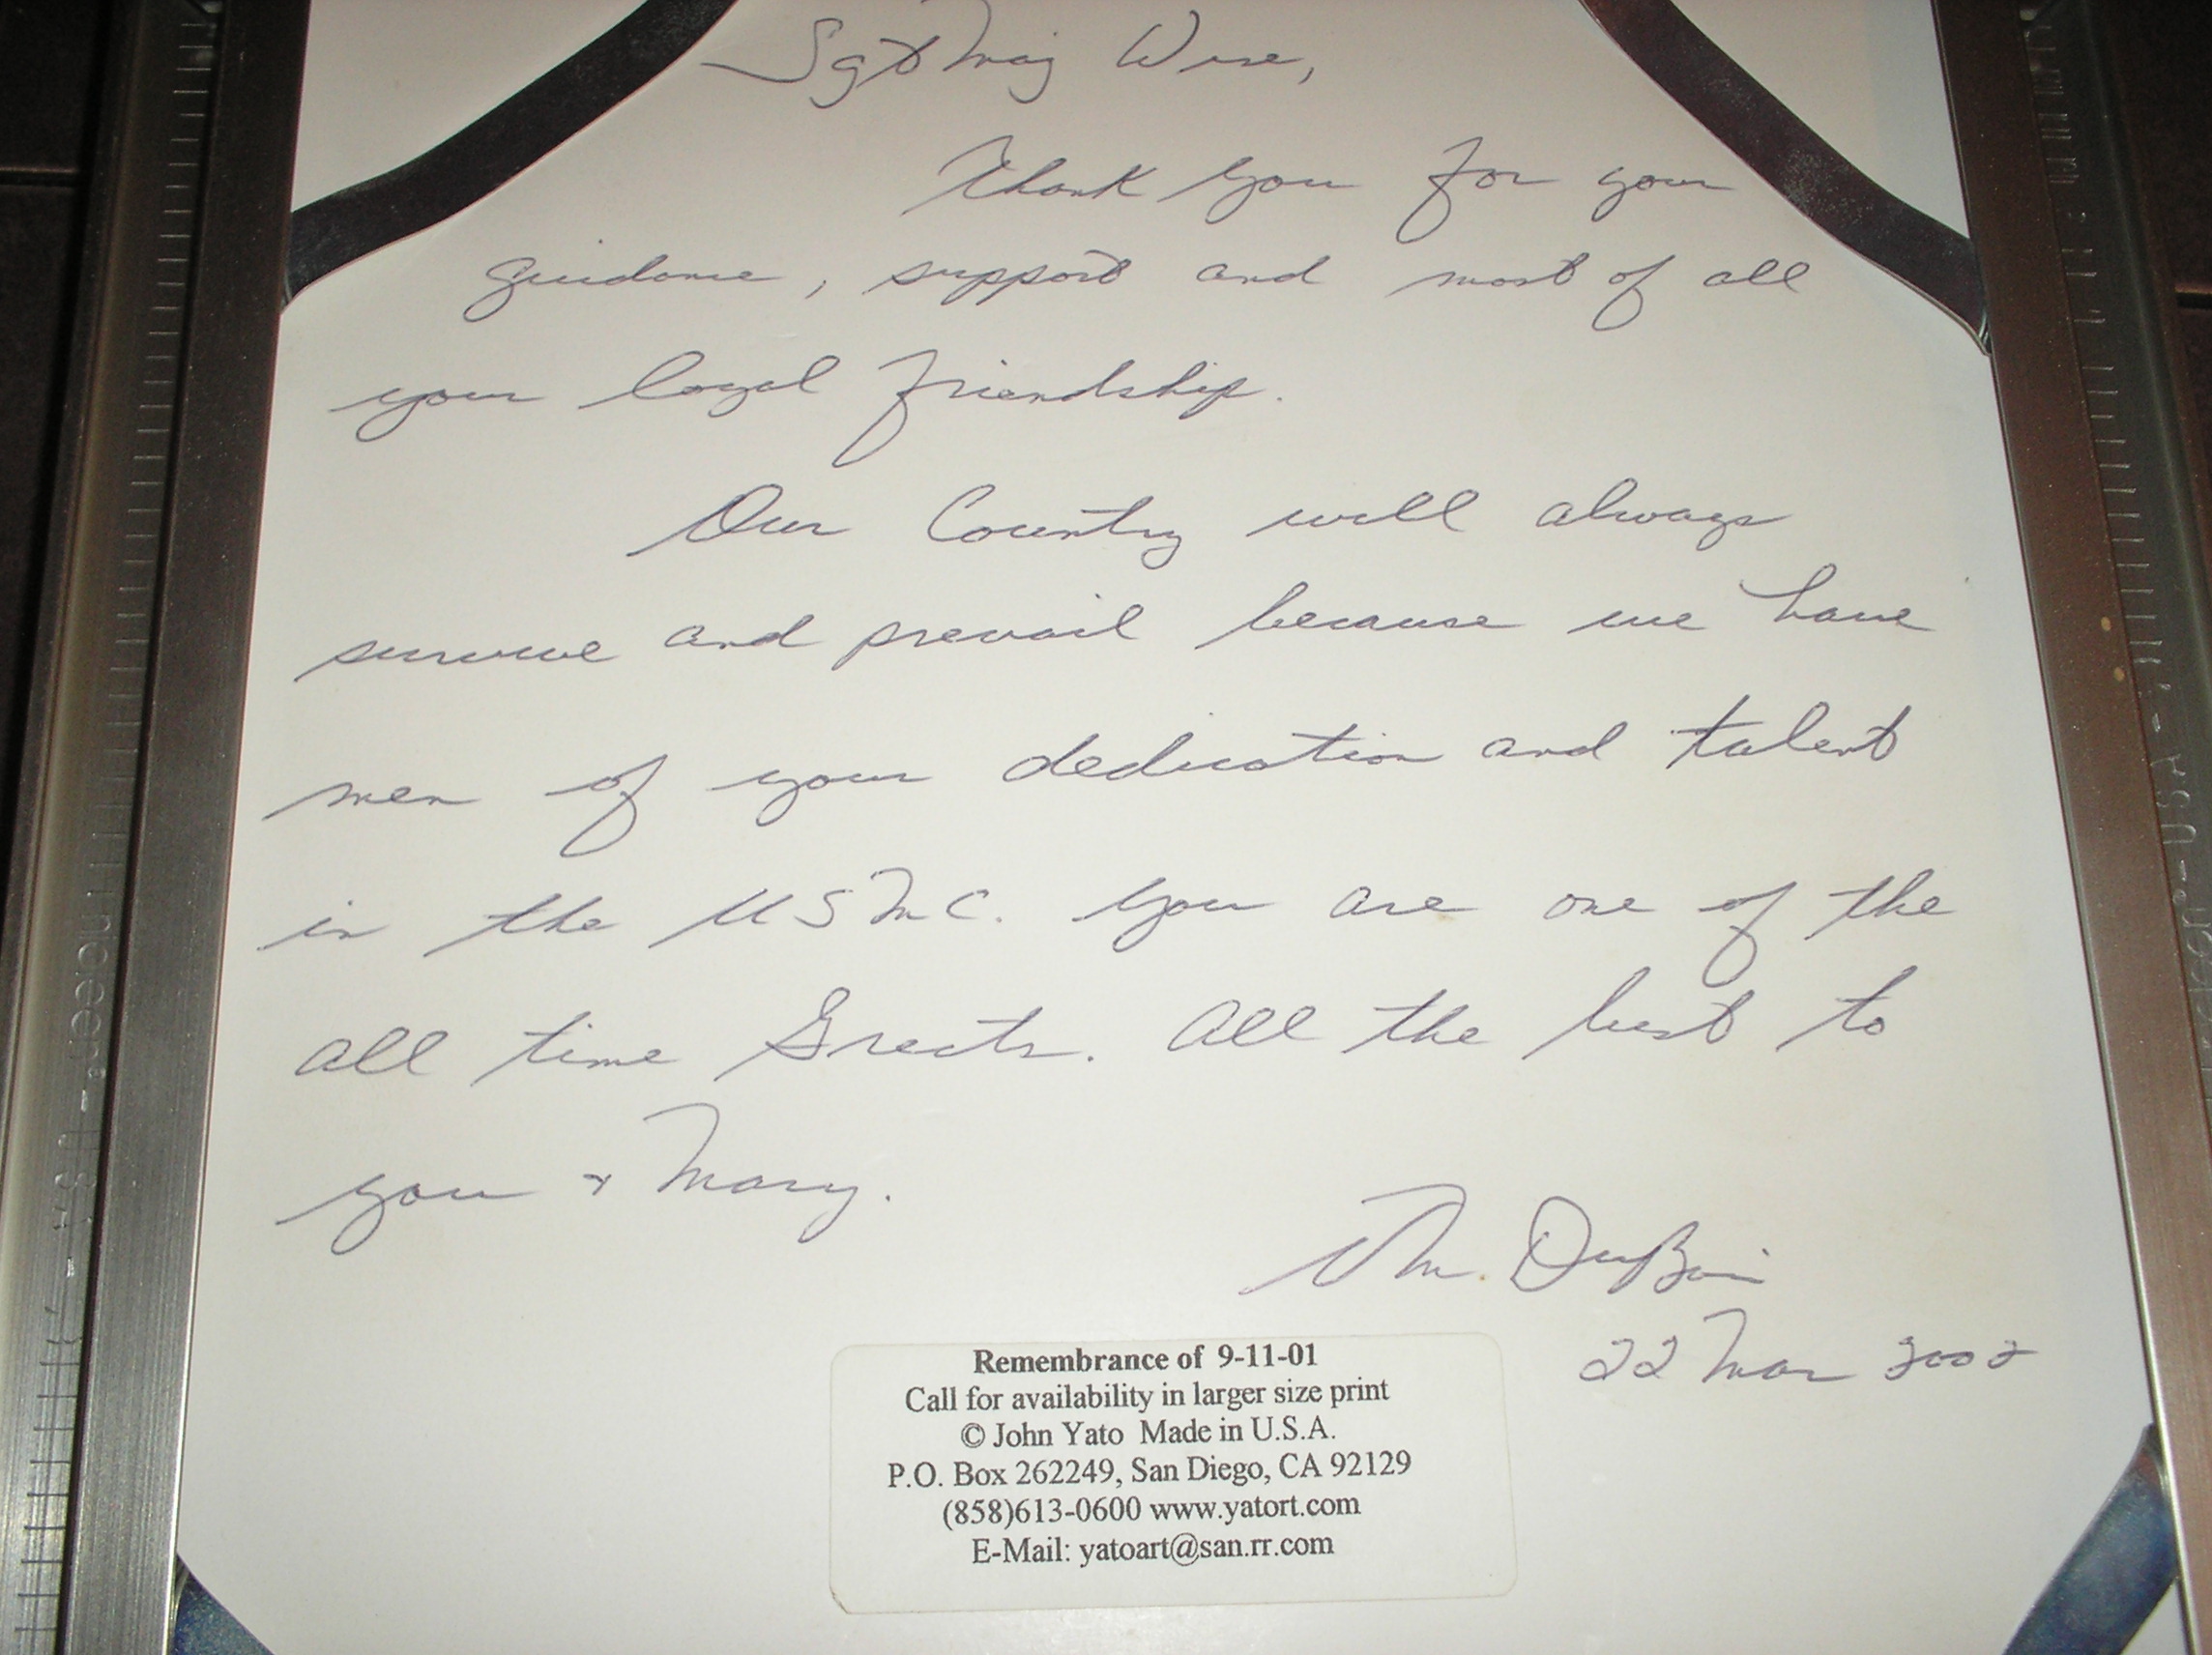 Sgt Maj Wise,
Thank you for your
guidance, support and most of all
your loyal friendship.
Our Country will always
survive and prevail because we have
men of your dedication and talent
in the USMC. You are one of the
all time Greats. All the best to
you & Mary.
Wm. DuBois
22 Mar 2002
Remembrance of 9-11-01
Call for availability in larger size print
© John Yato Made in U.S.A.
P.O. Box 262249, San Diego, CA 92129
(858)613-0600 www.yatort.com
E-Mail: yatoart@san.rr.com